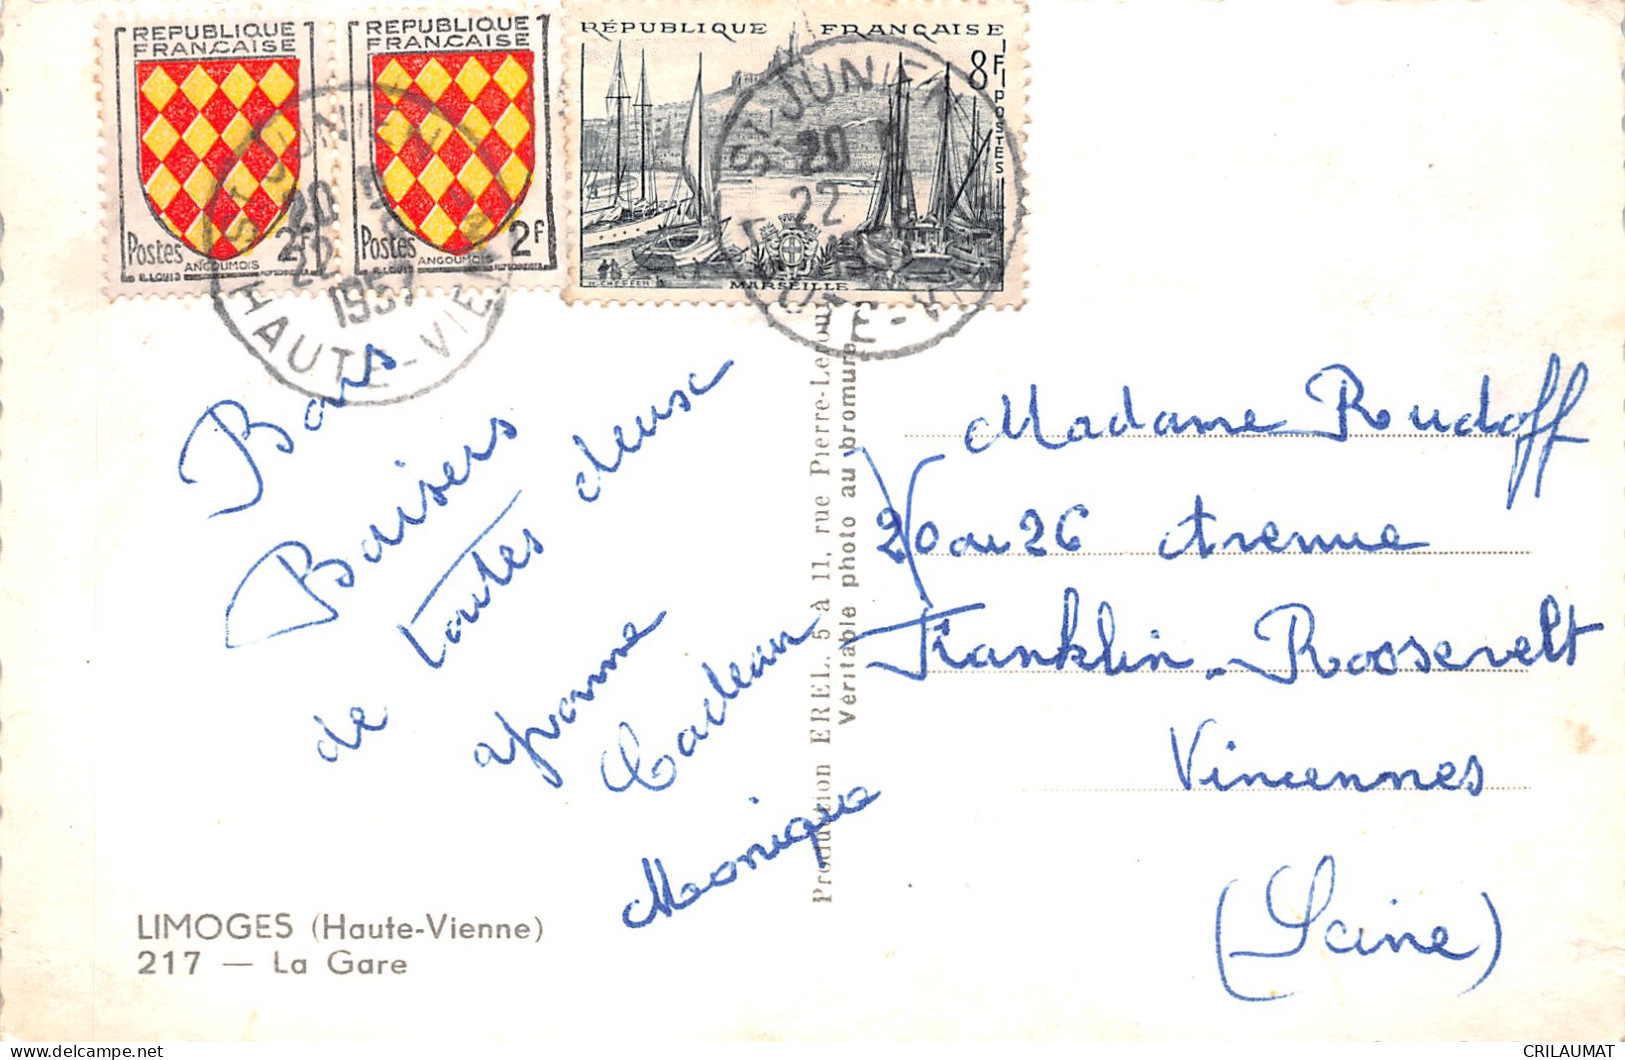 REPUBLIQUE
FRANCAISE
Postes
2f
ANGOUMOIS
R. LOUIS
REPUBLIQUE
FRANCAISE
Postes
2f
ANGOUMOIS
R. LOUIS
RÉPUBLIQUE FRANÇAISE
8F
POSTES
MARSEILLE
ST JUNIEN
20
22
1957
HAUTE-VIENNE
ST JUNIEN
20
22
HAUTE-VIENNE
Bons
Baisers
de toutes deux
Yvonne
Cadeau
Monique
Production EREL, 5 à 11, rue Pierre-Leroux
Véritable photo au bromure
Madame Rudoff
20 au 26 Avenue
Franklin-Roosevelt
Vincennes
(Seine)
LIMOGES (Haute-Vienne)
217 — La Gare
CRILAUMAT